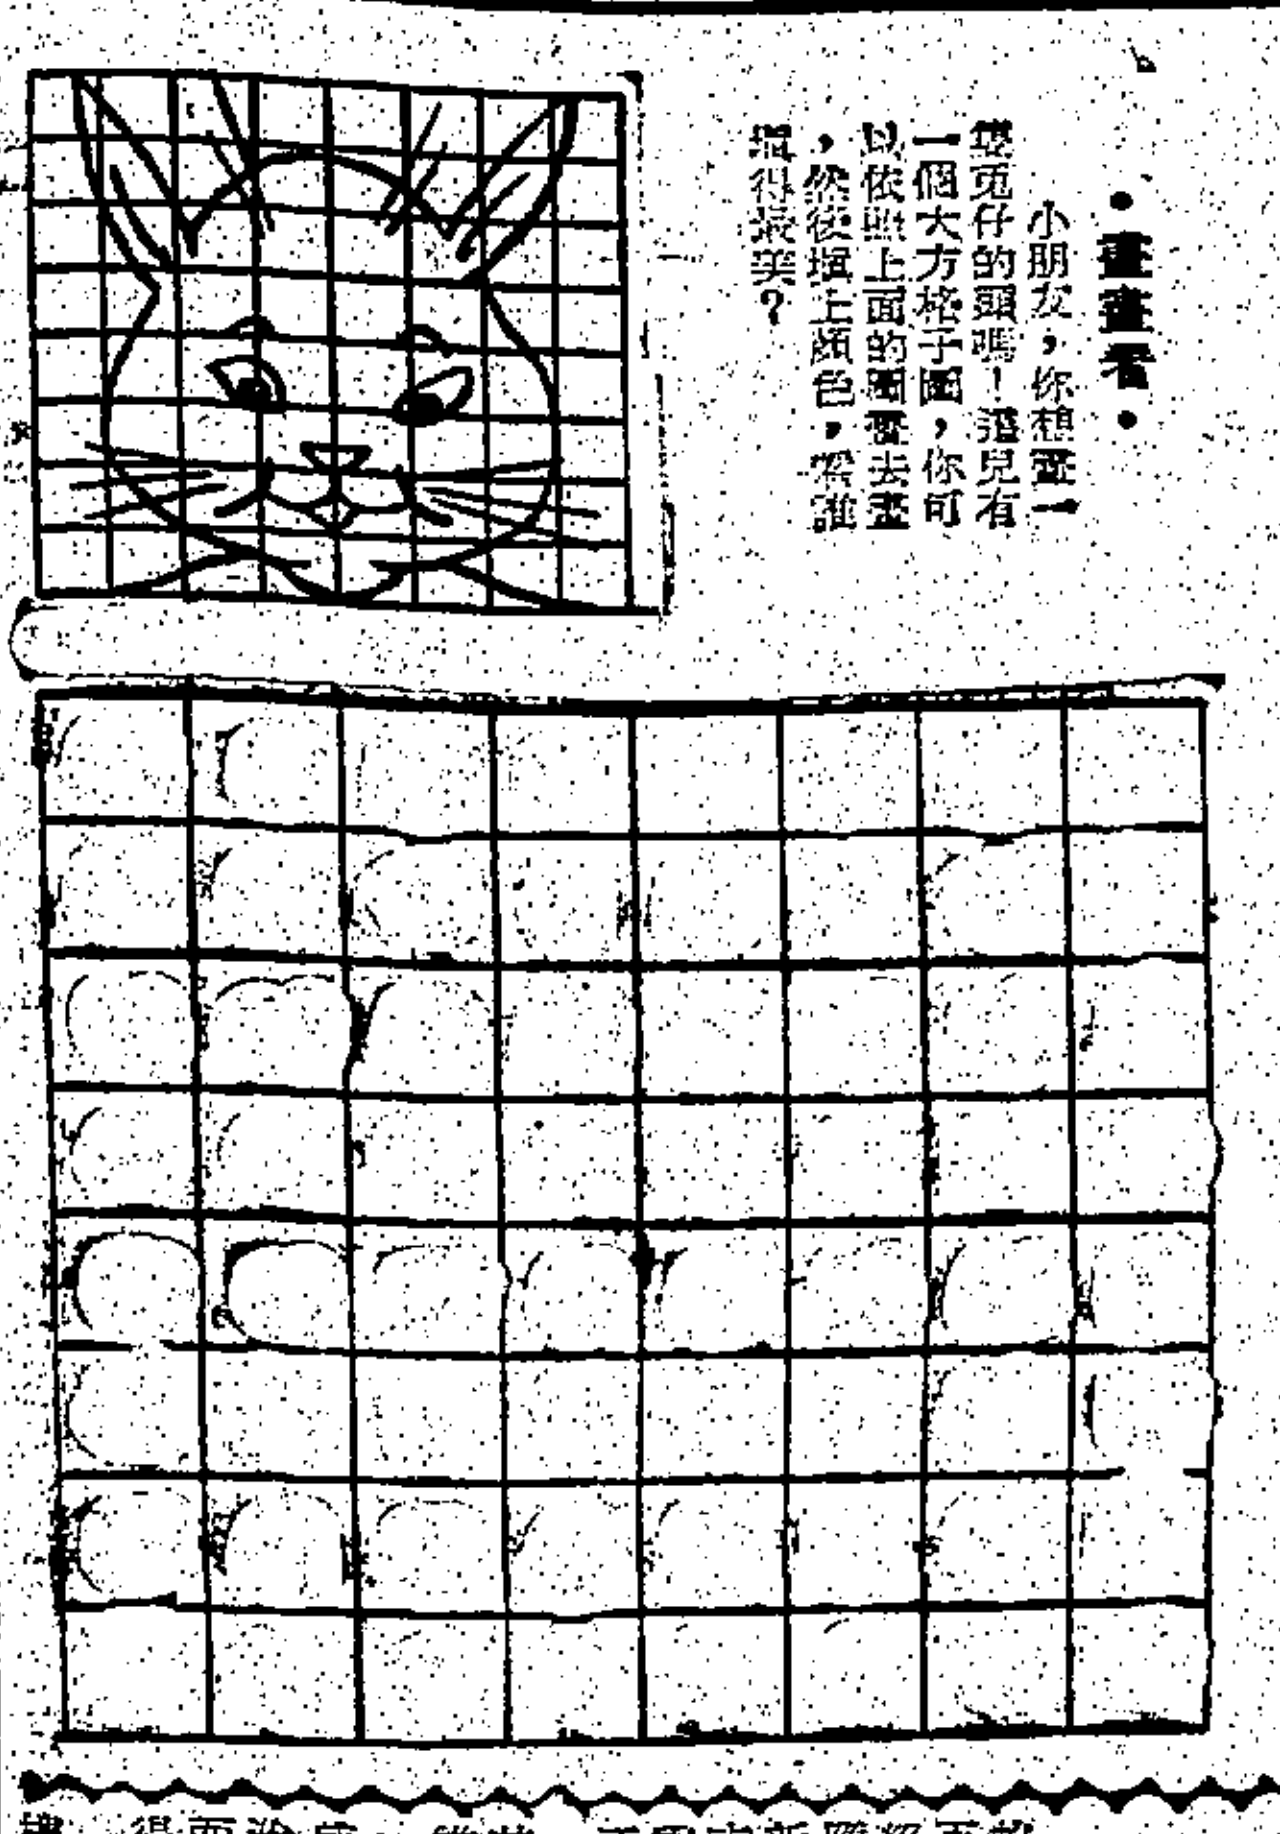 •畫畫看•
小朋友，你想畫一
隻兎仔的頭嗎！這兒有
一個大方格子圖，你可
以依照上面的圖畫去畫
，然後塡上顏色，看誰
塡得最美？